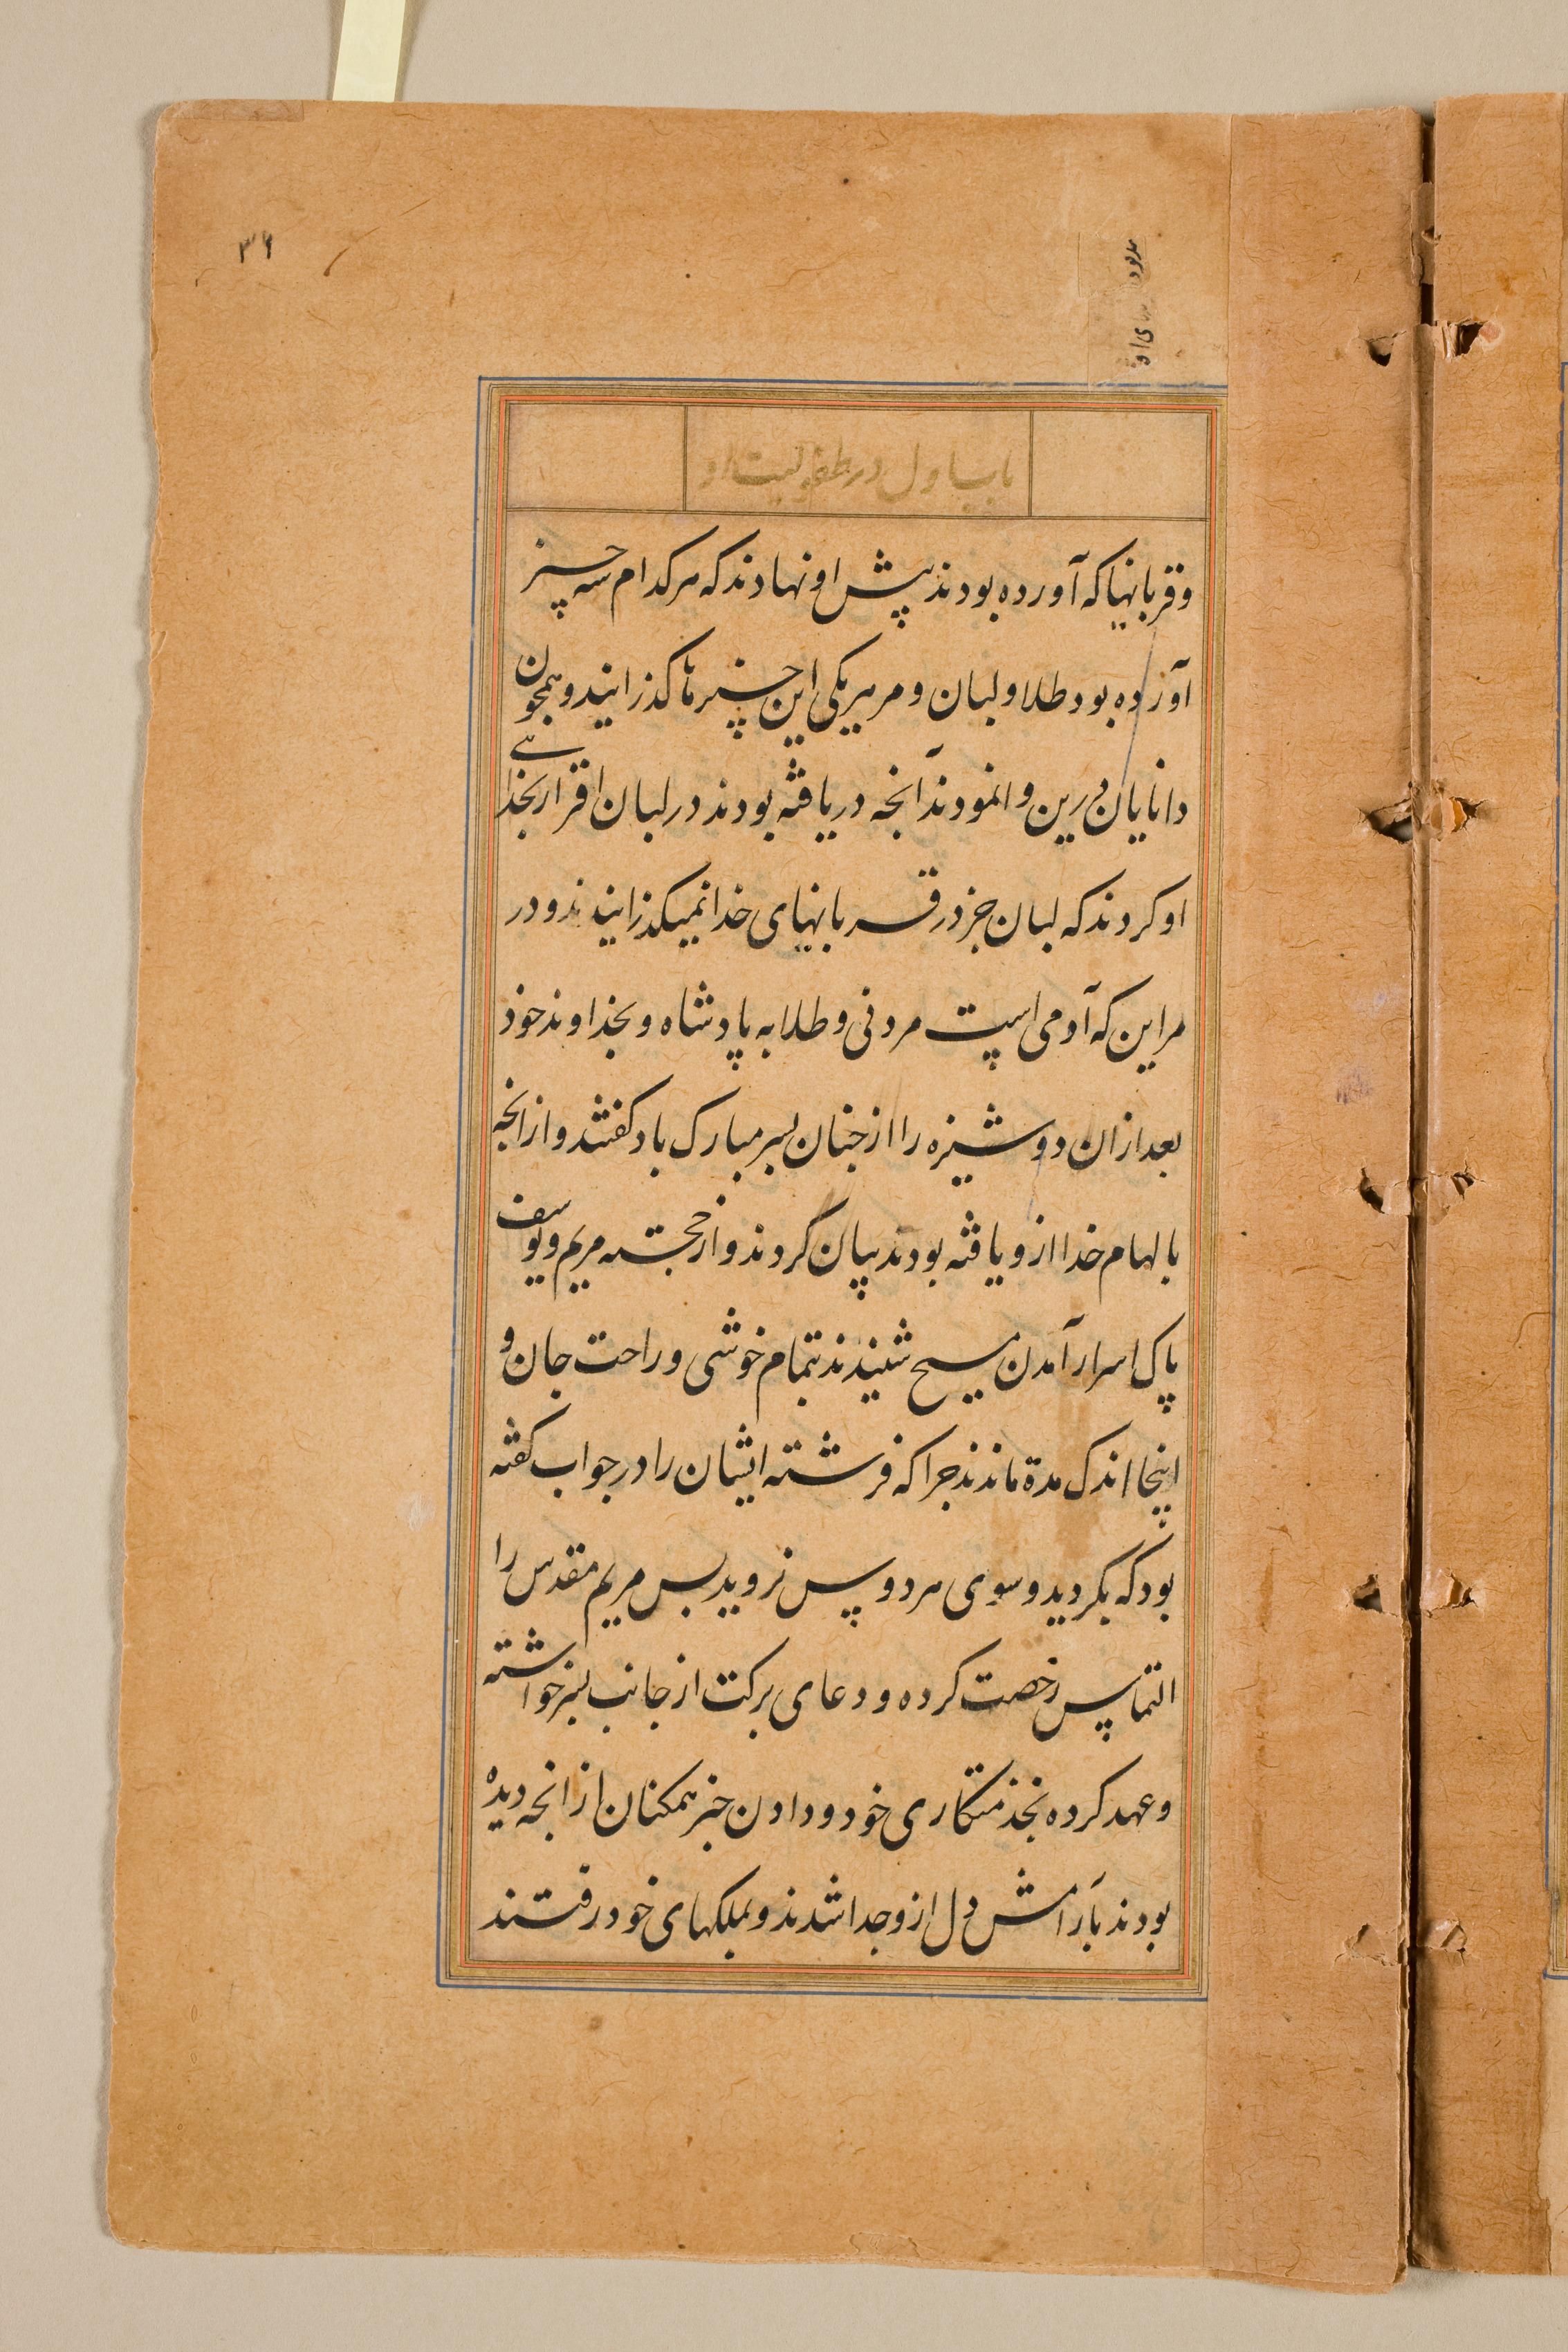 ۳۶
باب اول در طفولیت او
و قربانیها که آورده بودند پیش او نهادند که هر کدام سه چیز
آورده بود طلا و لبان و مر هر یکی این چیزها گذرانیند و همچون
دانایان وانمودند آنچه دریافته بودند در لبان اقرار بخدائے
او کردند که لبان جز در قربانیهای خدا نمیگذرانیدند و در
مر این که آدمی است مردنی و طلا به پادشاه و بخداوند خود
بعد ازان دوشیزه را از چنان پسر مبارک باد گفتند و ازانچه
بالهام خدا ازو یافته بودند بیان کردند و از خجسته مریم و یوسف
پاک اسرار آمدن مسیح شنیدند بتمام خوشی و راحت جان و
اینجا اندک مدة ماندند چرا که فرشته ایشان را در جواب گفته
بود که بگردید و سوی هردوپس نروید پس مریم مقدس را
التماس رخصت کرده و دعای برکت از جانب پسر خواسته
و عهد کرده بخدمتکاری خود و دادن خبر همکنان ازانچه دیده
بودند بآرامش دل ازو جدا شدند و بملکهای خود رفتند